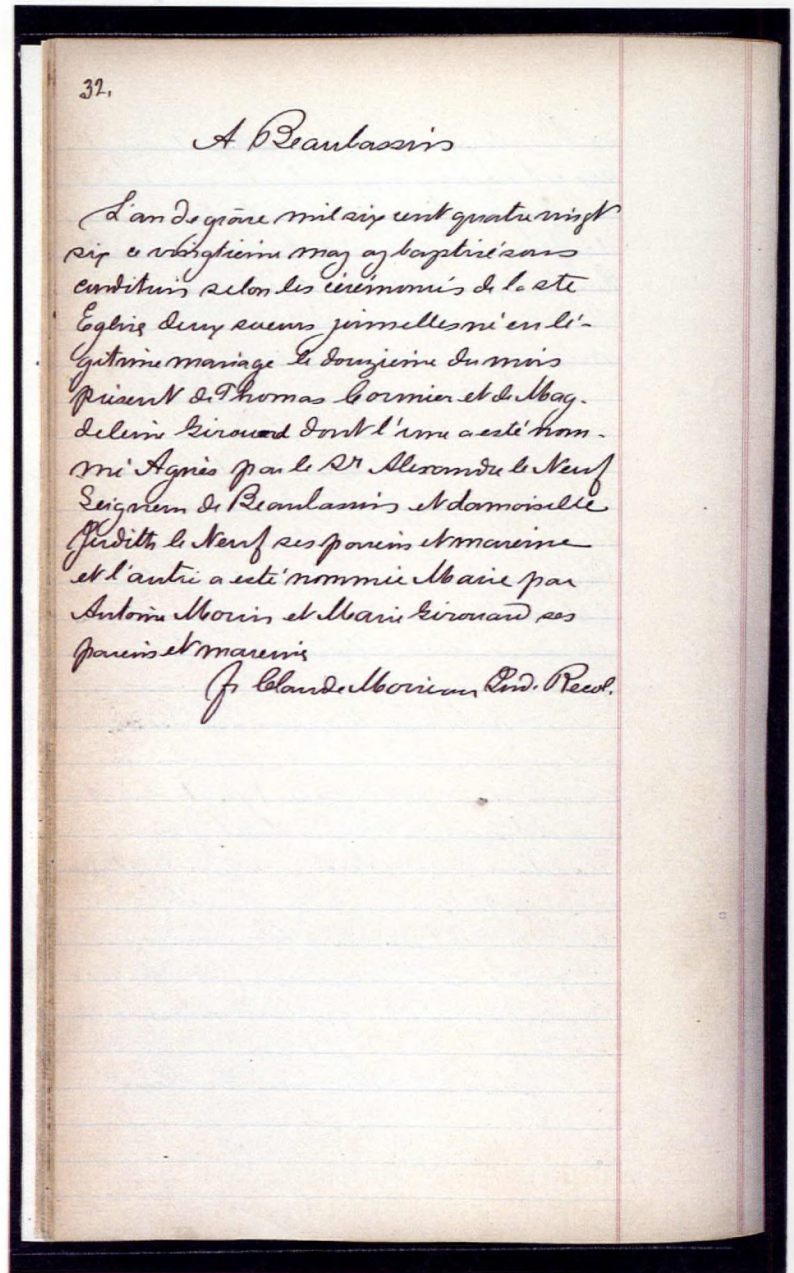 32.
A Beaubassin
L'an de grâce mil six cent quatre vingt
six ce vingtieme may ay baptisé sous
condition selon les cérémonies de la ste
Eglise deux soeurs jumelles né en lé-
gitime mariage le douzieme du mois
présent de Thomas Cormier et de Mag-
deleine Girouard dont l'une a esté nom-
mé Agnès par le Sr Alexandre le Neuf
Seigneur de Beaubassin et damoiselle
Judith le Neuf ses parein et mareine
et l'autre a esté nommée Marie par
Antoine Morin et Marie Girouard ses
parein et mareine
fr Claude Moireau Ind. Recol.